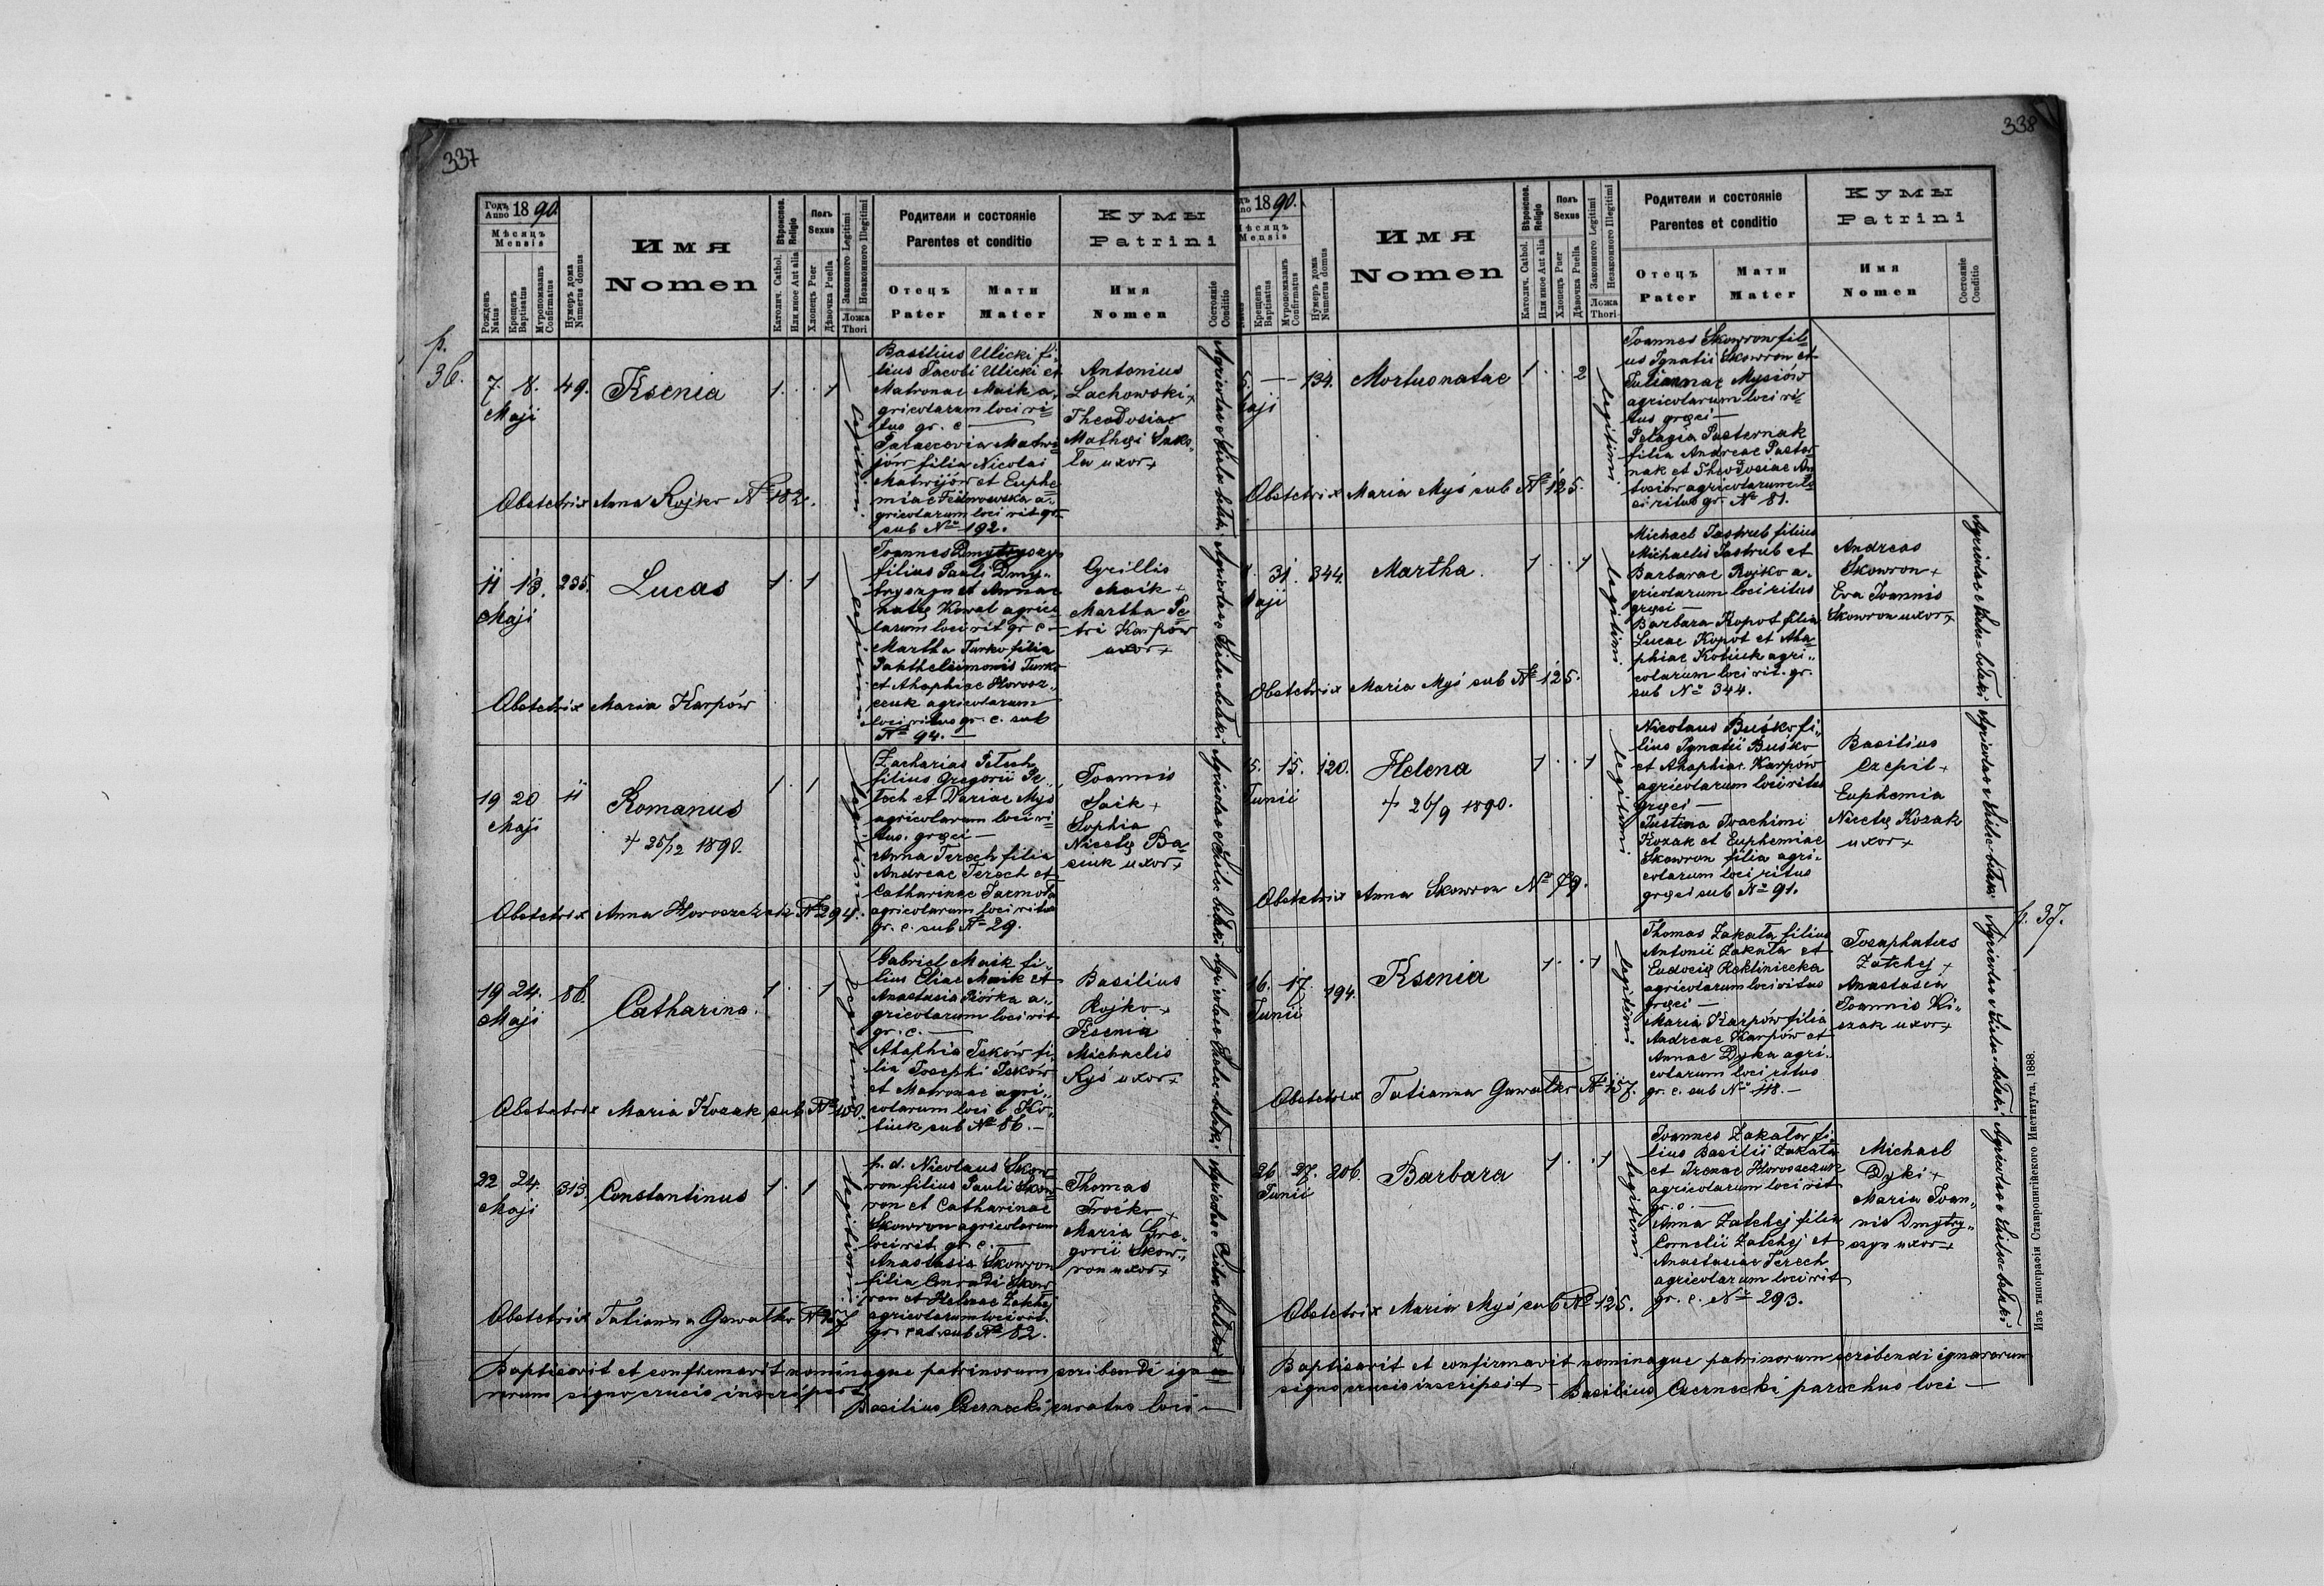 337
Годъ Anno 1890.
Мѣсяцъ
Mensis
Рожденъ Natus
Крещенъ Baptisatus
Мѵропомазанъ Confirmatus
Нумеръ дома Numerus domus
Имя
Nomen
Вѣроиспов. Religio
Католич. Cathol.
Или иное Aut alia
Полъ Sexus
Хлопецъ Puer
Дѣвочка Puella
Законного Legitimi
Незаконного Illegitimi
Ложа Thori
Родители и состояніе
Parentes et conditio
Отецъ
Pater
Мати
Mater
Кумы
Patrini
Имя
Nomen
Состояніе
Conditio
p. 36.
7. 8. 49.
Maji
Ksenia
1 . . 1
legitimi
Basilius Ulicki fi„
lius Jacobi Ulicki et
Matronae Maik a„
gricolarum loci ri=
tus gr. c —
filia Nicolai
Matwijów et Euphe=
miae a„
gricolarum loci rit gr.
sub No 192.
Antonius
Lachowski +
Theodosia
uxor +
Agricolae
Obstetrix Anna Rojko No 182.
11 13. 235.
Maji
Lucas
1 . 1
legitimi
Joannes Dmytryszyn
filius Pauli Dmy„
tryszyn et Annae
Kowal agrico
larum loci rit gr c —
Martha Turko filia
Turko
et Ahaphiae Horosz„
czuk agricolarum
loci ritus gr. c. sub
No 94. —
Cyrillis
Maik +
Martha Pe
tri Karpów
uxor +
Agricolae
Obstetrix Maria Karpów
19 20 11
Maji
Romanus
+ 25/12 1890.
1 . 1
legitimi
Zacharias Petech
filius Gregorii Pe„
tech et Dariae Myś
agricolarum loci ri=
tus. gręci —
Anna Terech filia
Andreae Terech et
Catharinae
agricolarum loci ritus
gr. c. sub No 29.
Joannis
Saik +
Sophia
Nicetę Ba=
siuk uxor +
Agricolae
Obstetrix Anna Horoszczuk No 294.
19 24. 86.
Maji
Catharina.
1 . . 1
legitimi
Gabriel Maik fi„
lius Eliae Maik et
Anastasia Piórka a„
gricolarum loci rit
gr. c. —
Ahaphia Jaków fi„
lia Josephi Jaków
et Matronae agri„
colarum loci Ko„
tiuk sub No 86. —
Basilius
Rojko +
Ksenia
Michaelis
Ryś uxor +
Agricolae
Obstetrix Maria Kozak sub No 150.
22 24. 313.
Maji
Constantinus
1 . 1
legitimi
p. d. Nicolaus Skow=
ron filius Pauli Skow=
ron et Catharinae
Skowron agricolarum
loci rit gr c. —
Anastasia Skowron
filia Conradi Skow
ron et Helenae Zatchej
agricolarum loci rit.
gr. cat. sub No 82.
Thomas
Troćko +
Maria Gre„
gorii Skow„
ron uxor +
Agricolae
Obstetrix Tatianna Gawatko No 157
Baptisavit et confirmavit nominaque patrinorum scribendi igna=
rorum signo crucis inscripsit
Basilius Czernecki curatus loci —
338
1890.
Мѣсяцъ
Mensis
Крещенъ Baptisatus
Мѵропомазанъ Confirmatus
Нумеръ дома Numerus domus
Имя
Nomen
Вѣроиспов. Religio
Католич. Cathol.
Или иное Aut alia
Полъ Sexus
Хлопецъ Puer
Дѣвочка Puella
Законного Legitimi
Незаконного Illegitimi
Ложа Thori
Родители и состояніе
Parentes et conditio
Отецъ
Pater
Мати
Mater
Кумы
Patrini
Имя
Nomen
Состояніе
Conditio
— 134.
Mortuonatae
1 . . 2
legitimi
Joannes Skowron fili
us Ignatii Skowron et
Juliannae Mysiów
agricolarum loci ri=
tus gręci —
Pelagia Pasternak
filia Andreae Paster
nak et Theodosiae An
tosiów agricolarum lo
ci ritus gr No 81.
Obstetrix Maria Myś sub No 125.
31. 344.
Martha.
1 . . 1
legitimi
Michael Jastrub filius
Michaelis Jastrub et
Barbarae Rojko a„
gricolarum loci ritus
gręci —
Barbara Kopot filia
Lucae Kopot et Aha=
phiae Kotiuk agri„
colarum loci rit. gr.
sub No 344.
Andreas
Skowron +
Eva Joannis
Skowron uxor +
Agricolae
Obstetrix Maria Myś sub No 125.
15. 120.
Junii
Helena
+ 26/9 1890.
1 . . 1
legitimi
Nicolaus Buśko fi„
lius Ignatii Buśko
et Ahaphiae Karpów
agricolarum loci ritus
gręci —
Justina Joachimi
Kozak et Euphemiae
Skowron filia agri„
colarum loci ritus
gręci sub No 91.
Basilius
Czepil +
Euphemia
Nicetę Kozak
uxor +
Agricolae
p. 37.
Obstetrix Anna Skowron No 79.
16. 17. 194.
Junii
Ksenia
1 . . 1
legitimi
Thomas Zakała filius
Antonii Zakała et
Eudocię
agricolarum loci ritus
gręci —
Maria Karpów filia
Andreae Karpów et
Annae Dyka agri„
colarum loci ritus
gr. c. sub No 118. —
Josaphatus
Zatchej +
Anastasia
Joannis Ki„
szak uxor +
Agricolae
Obstetrix Tatianna Gawatko No 157.
26 27. 206.
Junii
Barbara
1 . . 1
legitimi
Joannes Zakała fi„
lius Basilii Zakała
et Irenae Horoszczuk
agricolarum loci rit
gr. c. —
Anna Zatchej filia
Cornelii Zatchej et
Anastasiae Terech
agricolarum loci rit
gr. c. No 293.
Michael
Dyki +
Maria Joan„
nis Dmytry„
szyn uxor +
Agricolae
Obstetrix Maria Myś sub No 125.
Baptisavit et confirmavit nominaque patrinorum scribendi ignarorum
signo crucis inscripsit — Basilius Czernecki parochus loci —
Изъ типографіи Ставропигійского Института. 1888.